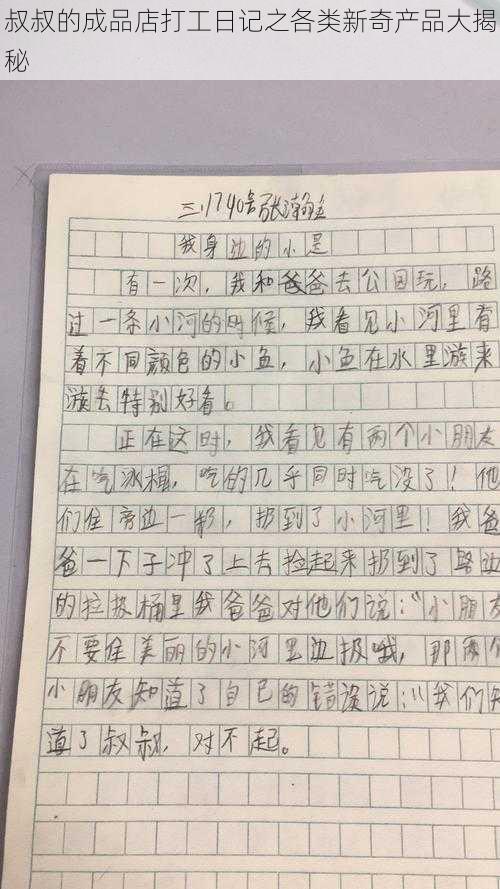 叔叔的成品店打工日记之各类新奇产品大揭
秘
三.1740号张瀚
我身边的小是
有一次,我和爸爸去公园玩,路
过一条小河的时候,我看见小河里有
着不同颜色的小鱼,小鱼在水里游来
游去特别好看。
正在这时,我看见有两个小朋友
在吃冰棍,吃的几乎同时吃没了!他
们往旁边一扔,扔到了小河里!我爸
爸一下子冲了上去捡起来扔到了路边
的垃圾桶里我爸爸对他们说:"小朋友
不要往美丽的小河里边扔哦,那两个
小朋友知道了自己的错误说:"我们知
道了叔叔,对不起。